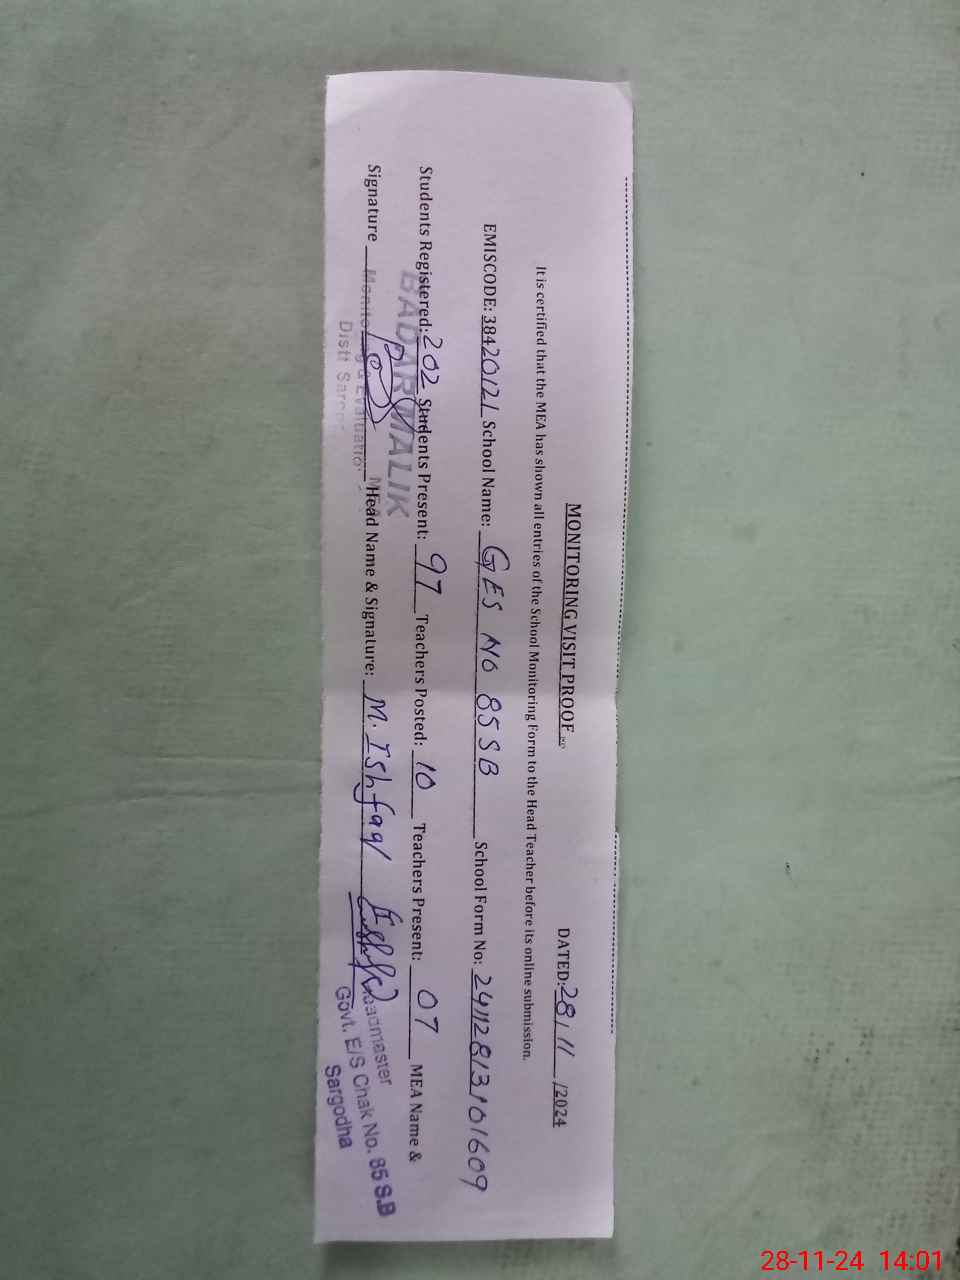 MONITORING VISIT PROOF
DATED: 28/11/2024
It is certified that the MEA has shown all entries of the School Monitoring Form to the Head Teacher before its online submission.
EMISCODE: 38420121 School Name: GES NO 85SB School Form No: 24112813101609
Students Registered: 202 Students Present: 97 Teachers Posted: 10 Teachers Present: 07 MEA Name &
Signature Head Name & Signature: M. Ishfaq
BADAR MALIK
MEA
Monitoring & Evaluation
Distt
Headmaster
Govt. E/S Chak No. 85 S.B
Sargodha
28-11-24 14:01